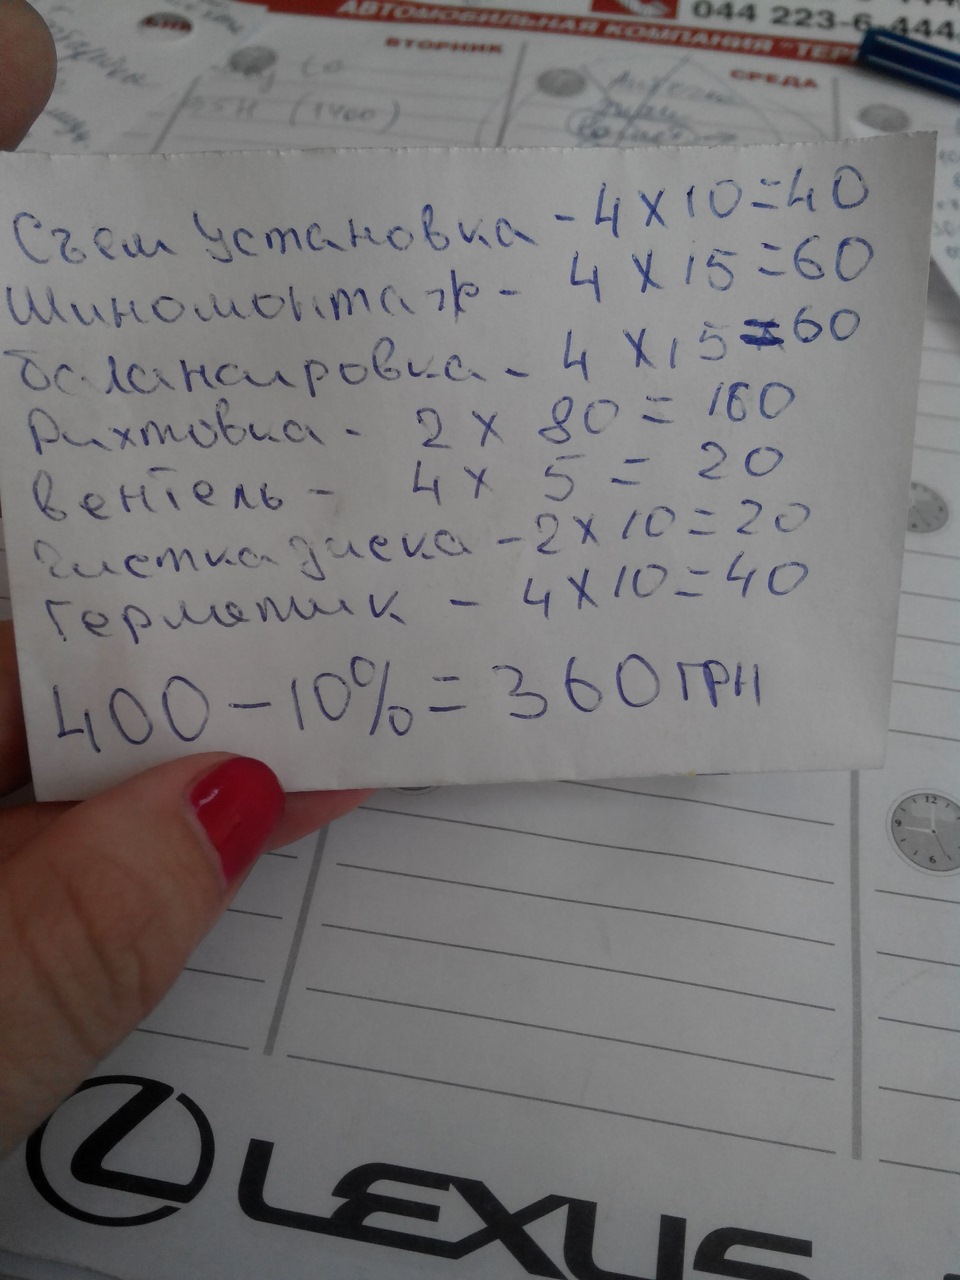 044 223-6-444
АВТОМОБИЛЬНАЯ КОМПАНИЯ "ТЕР
ВТОРНИК
СРЕДА
(1400)
Съем установка - 4 x 10 = 40
Шиномонтаж - 4 x 15 = 60
балансировка - 4 x 15 = 60
Рихтовка - 2 x 80 = 160
вентель - 4 x 5 = 20
Чистка диска - 2 x 10 = 20
Герметик - 4 x 10 = 40
400 - 10% = 360 ГРН
12
9
6
LEXUS